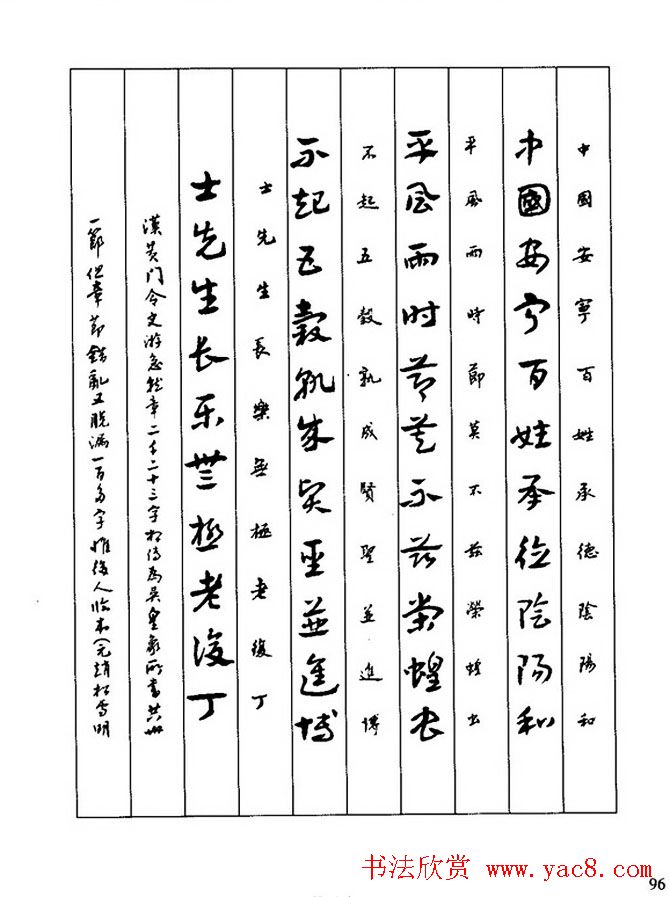 中國安寧百姓承德陰陽和
中國安宁百姓承德陰陽和
平風雨時節莫不茲榮蝗虫
平风雨时节莫不兹荣蝗虫
不起五穀孰成賢聖並進博
不起五穀孰成贤圣並進博
士先生長樂無極老復丁
士先生长乐無極老復丁
漢黄门令史游急就章二千二十三字相传为吴皇象所書共卅
一節但章節錯亂又脱漏一百多字惟後人临本(元趙松雪明
书法欣赏 www.yac8.com
96